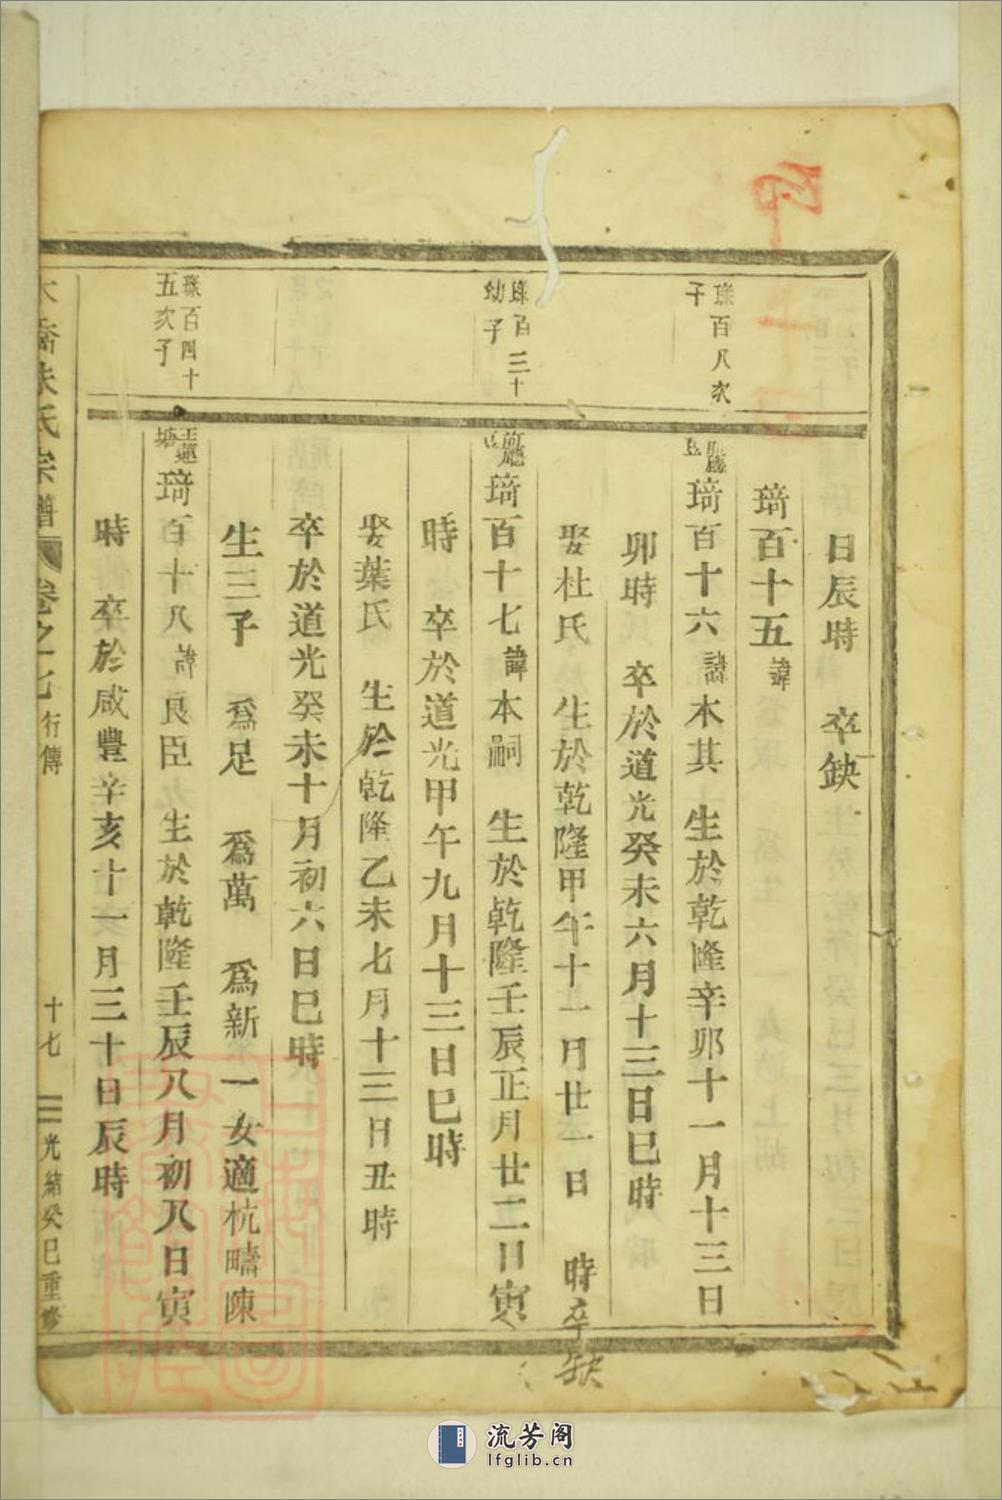 日辰時　卒缺
琦百十五諱
琭百八次
子
琦百十六諱木其　生於乾隆辛卯十一月十三日
卯時　卒於道光癸未六月十三日巳時
娶杜氏　生於乾隆甲午十一月廿一日　時卒缺
琭百三十
幼子
琦百十七諱本嗣　生於乾隆壬辰正月廿二日寅
時　卒於道光甲午九月十三日巳時
娶葉氏　生於乾隆乙未七月十三日丑時
卒於道光癸未十月初六日巳時
生三子　為足　為萬　為新　一女適杭疇陳
琭百四十
五次子
琦百十八諱良臣　生於乾隆壬辰八月初八日寅
時　卒於咸豐辛亥十一月三十日辰時
氏宗譜　卷之七　行傳　十七　光緒癸巳重修
流芳阁
lfglib.cn